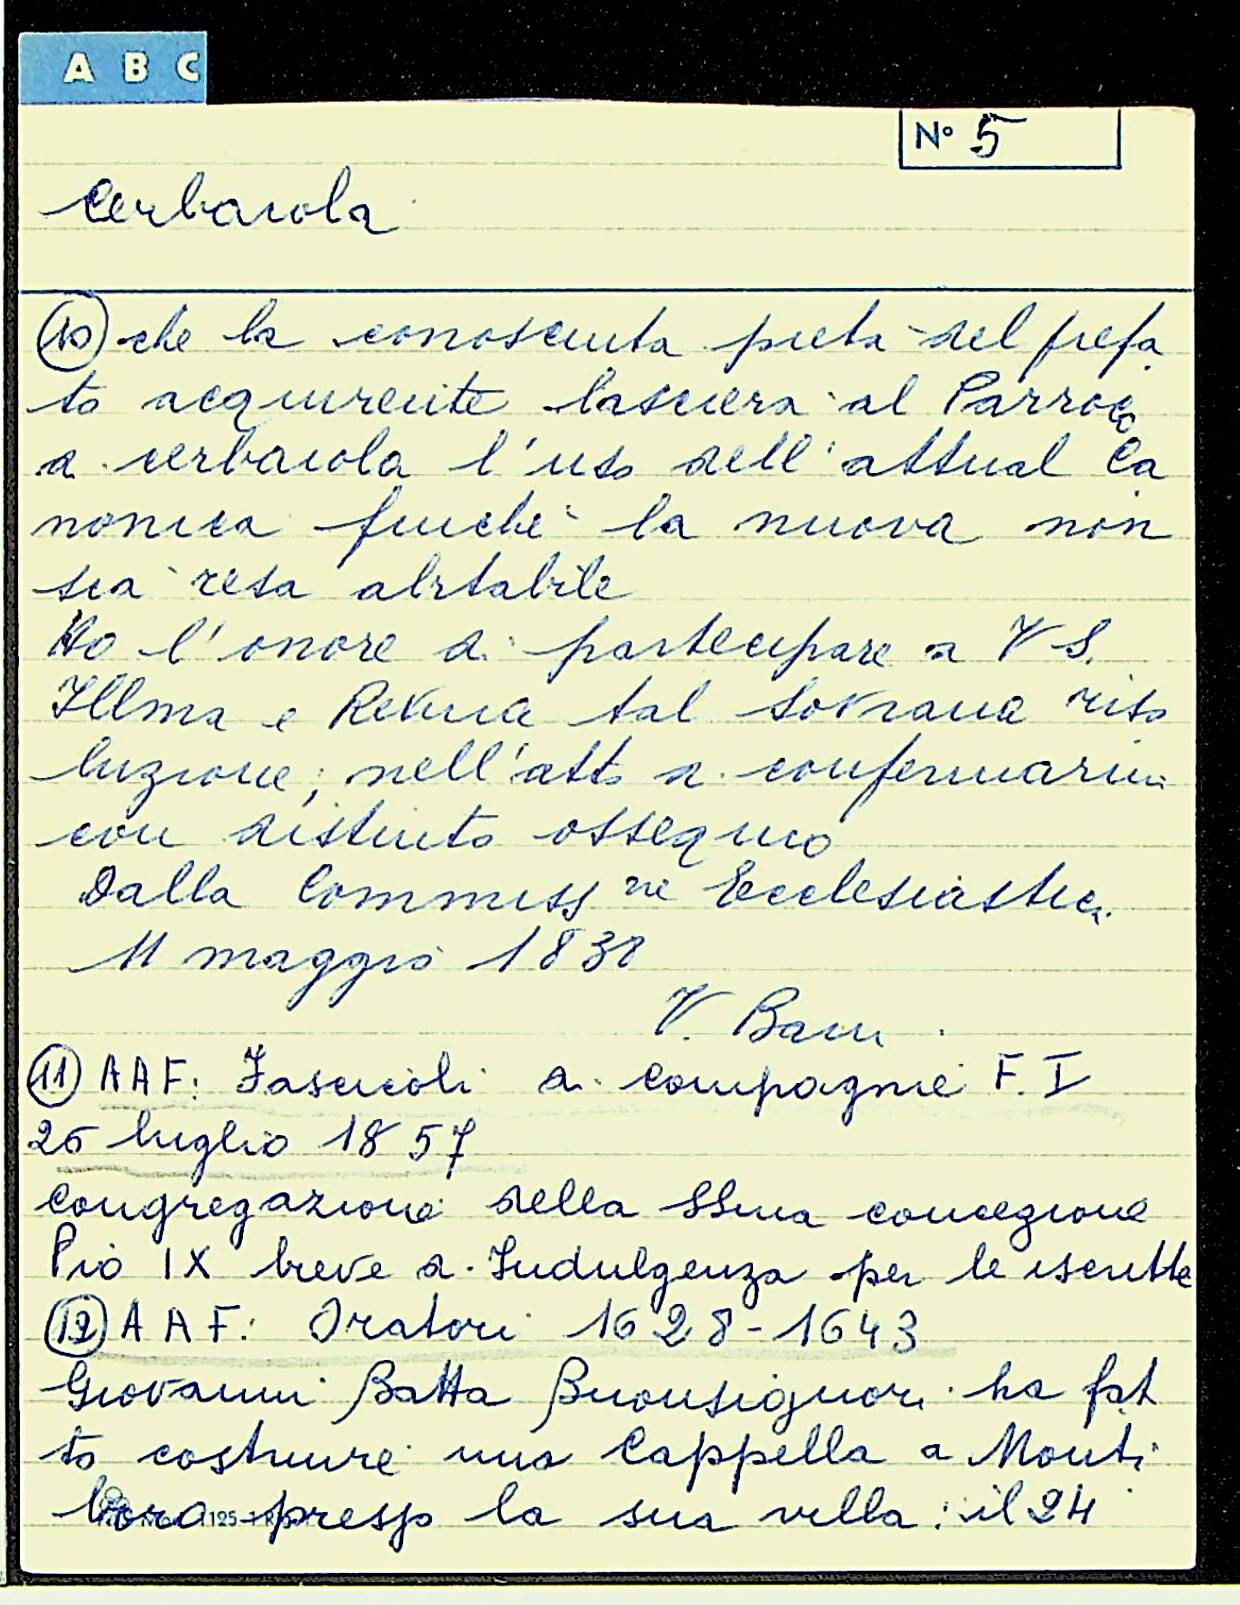 A B C
N° 5
Cerbaiola
(10) che la conosciuta pietà del prefa
to acquirente lascierà al Parroco
di Cerbaiola l'uso dell'attual Ca
nonica finché la nuova non
sia resa abitabile
Ho l'onore di partecipare a V S.
Illma e Revma tal sovrana riso
luzione; nell'atto di confermarmi
con distinto ossequio
Dalla Commiss ne Ecclesiastica
11 maggio 1838
V. Bani
(11) AAF: Fascicoli di compagnie F. I
26 luglio 1857
Congregazione della SSma concezione
Pio IX breve di Indulgenza per le iscritte
(12) A A F: Oratori 1628-1643
Giovanni Batta Buonsignori ha fat
to costruire una Cappella a Monti
loro presso la sua villa: il 24